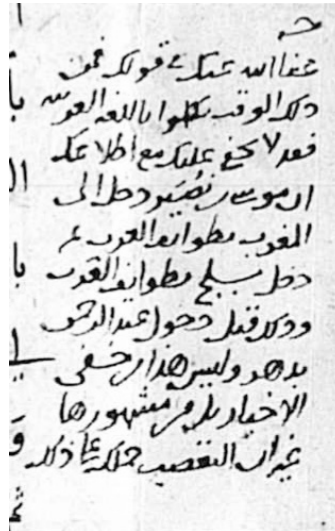 عفا الله عنك في قولك فمن
ذلك الوقت تكلموا باللغة العربية
فقد لا يخفى عليك مع اطلاعك
ان موسى بن نُصَير دخل الى
المغرب بطوايف العرب ثم
دخل بلج بطوايف العرب
وذلك قبل دخول عبد الرحمن
بدهر وليس هذا من خفي
الاخبار بل من مشهورها
غير ان التعصب حملك على ذلك